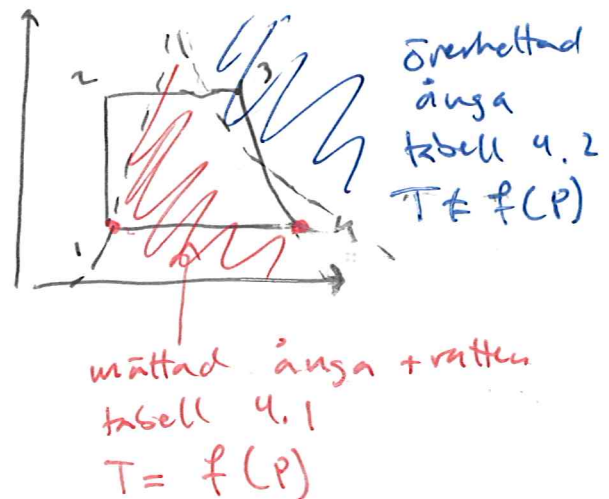 2
3
överhettad
ånga
tabell 4.2
T ≠ f(P)
1
4
mättad ånga + vatten
tabell 4.1
T = f(P)